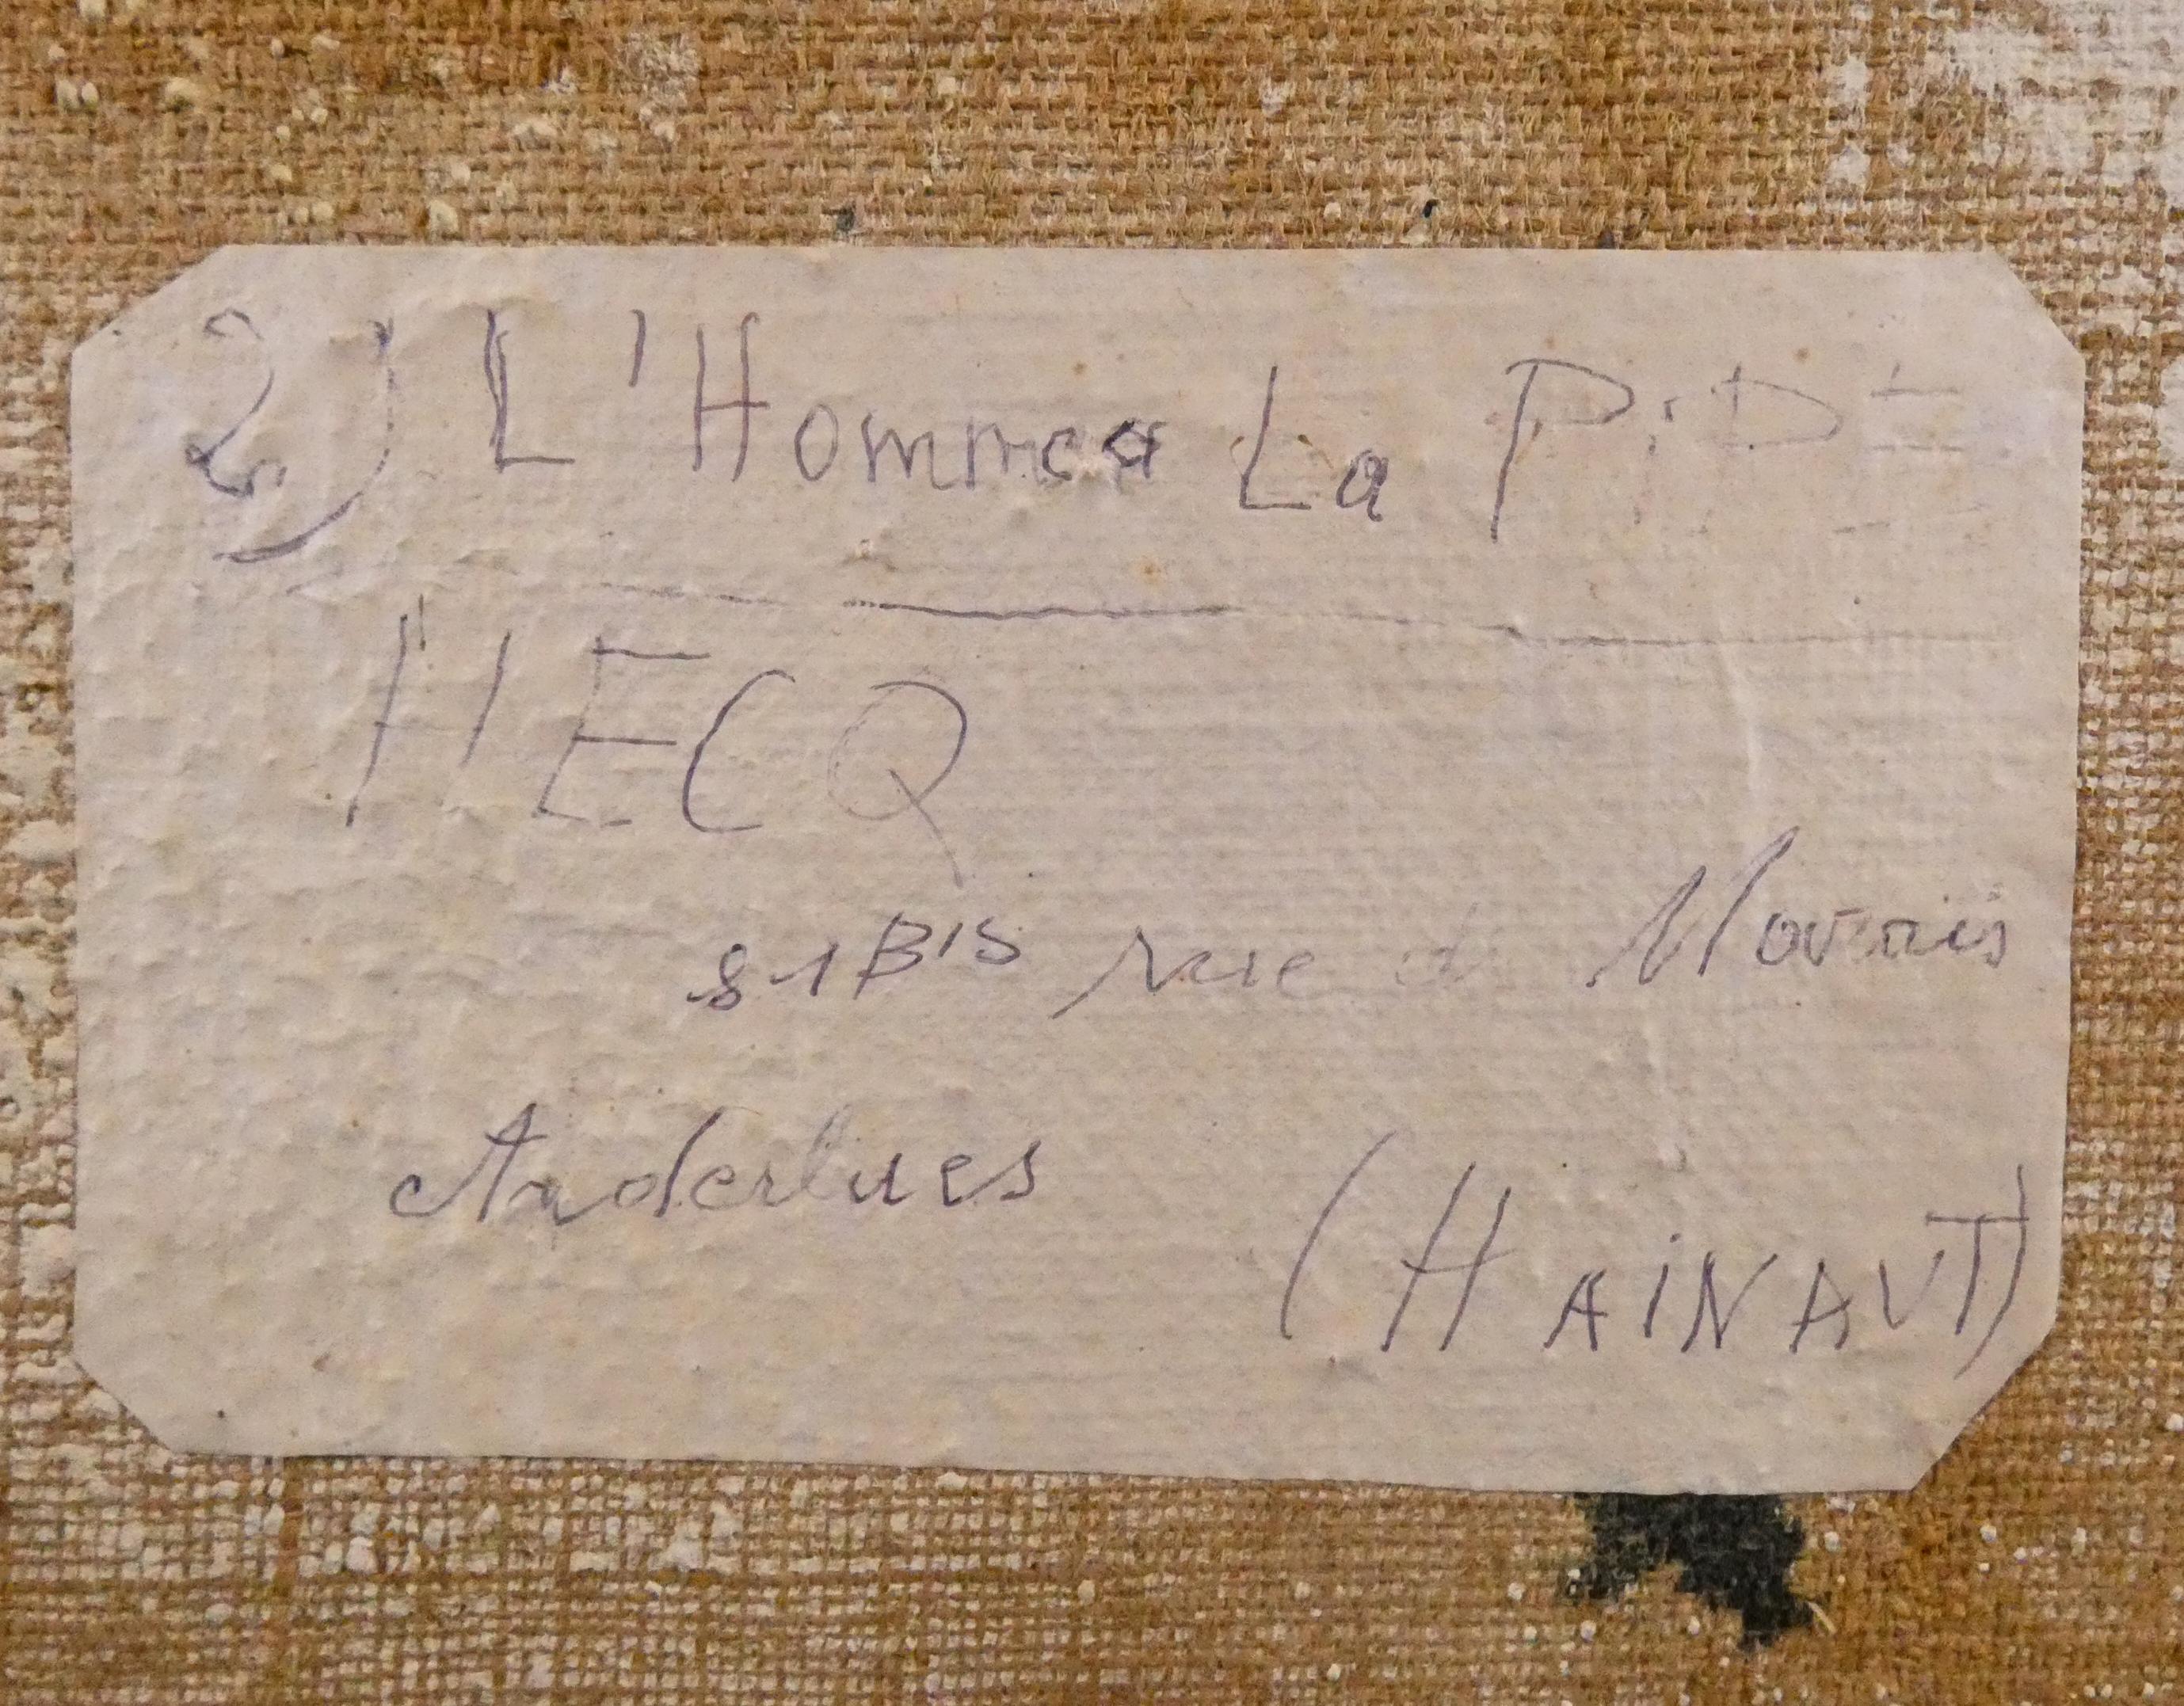 2) L'Homme a La PiPE
HECQ
81 BIS rue
Anderlues
(HAiNAUT)